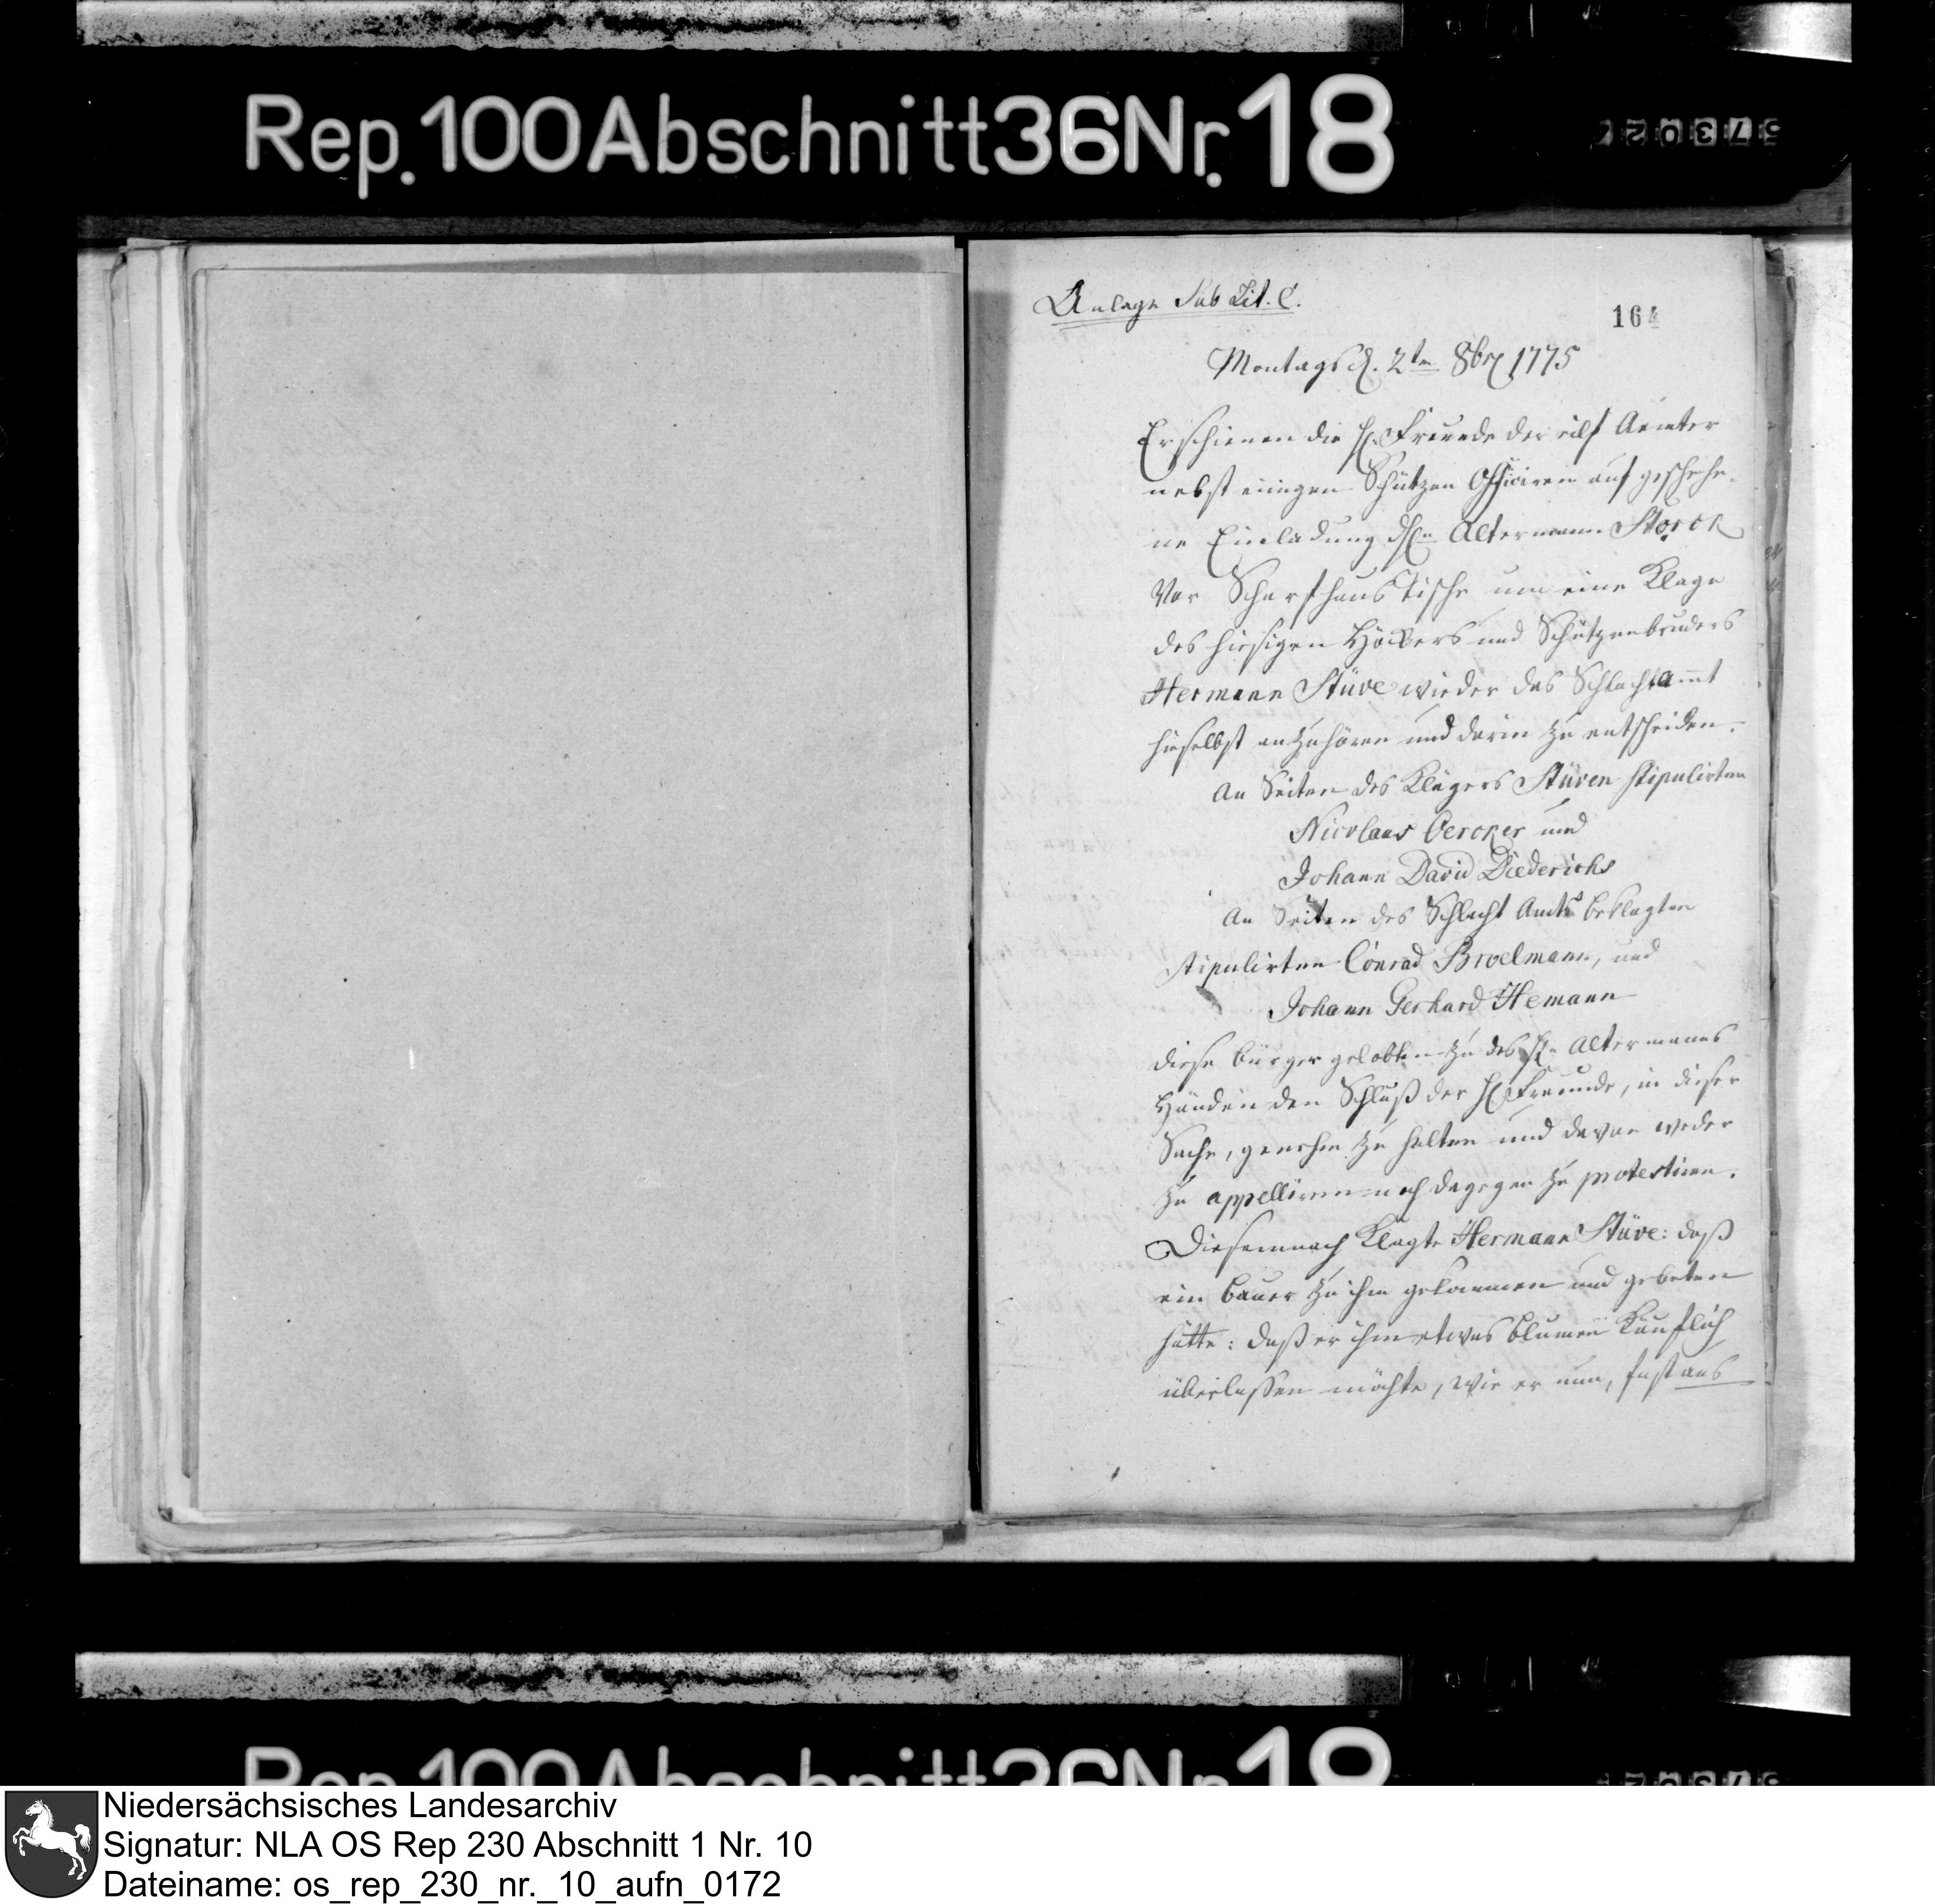 Rep. 100 Abschnitt 36 Nr. 18
Anlage Sub Lit. C.
164
Montags d. 2ten 8br 1775
Erschienen die H. Freunde der eilf Aemter
nebst einigen Schützen Officieren auf geschehe-
ne Einladung des Hn Altermann Storck
Vor Scharfhaus Tische um eine Klage
des hiesigen Höckers und Schützenbruders
Hermann Stüve wieder das Schlachtamt
hieselbst anzuhören und darin zu entscheiden.
An Seiten des Klägers Stüven stipulirten
Nicolaus Oercker und
Johann David Diederichs
An Seiten des Schlacht Amts Beklagten
stipulirten Conrad Broelmann, und
Johann Gerhard Hemann
diese Bürger gelobten zu des Hn Altermanns
Händen den Schluß der H. Freunde, in dieser
Sache, genehm zu halten und davon weder
zu appelliren noch dagegen zu protestiren.
Diesemnach Klagte Hermann Stüve: daß
ein Bauer zu ihm gekommen und gebeten
hätte: daß er ihm etwas Blumen Käuflich
überlassen möchte, wie er nun, fast aus
Rep. 100 Abschnitt 36 Nr. 18
Niedersächsisches Landesarchiv
Signatur: NLA OS Rep 230 Abschnitt 1 Nr. 10
Dateiname: os_rep_230_nr._10_aufn_0172